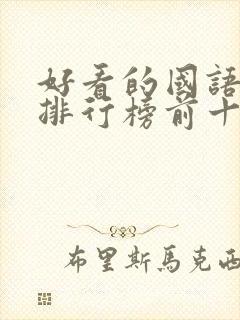 好看的國語
排行榜前十
布里斯馬克西